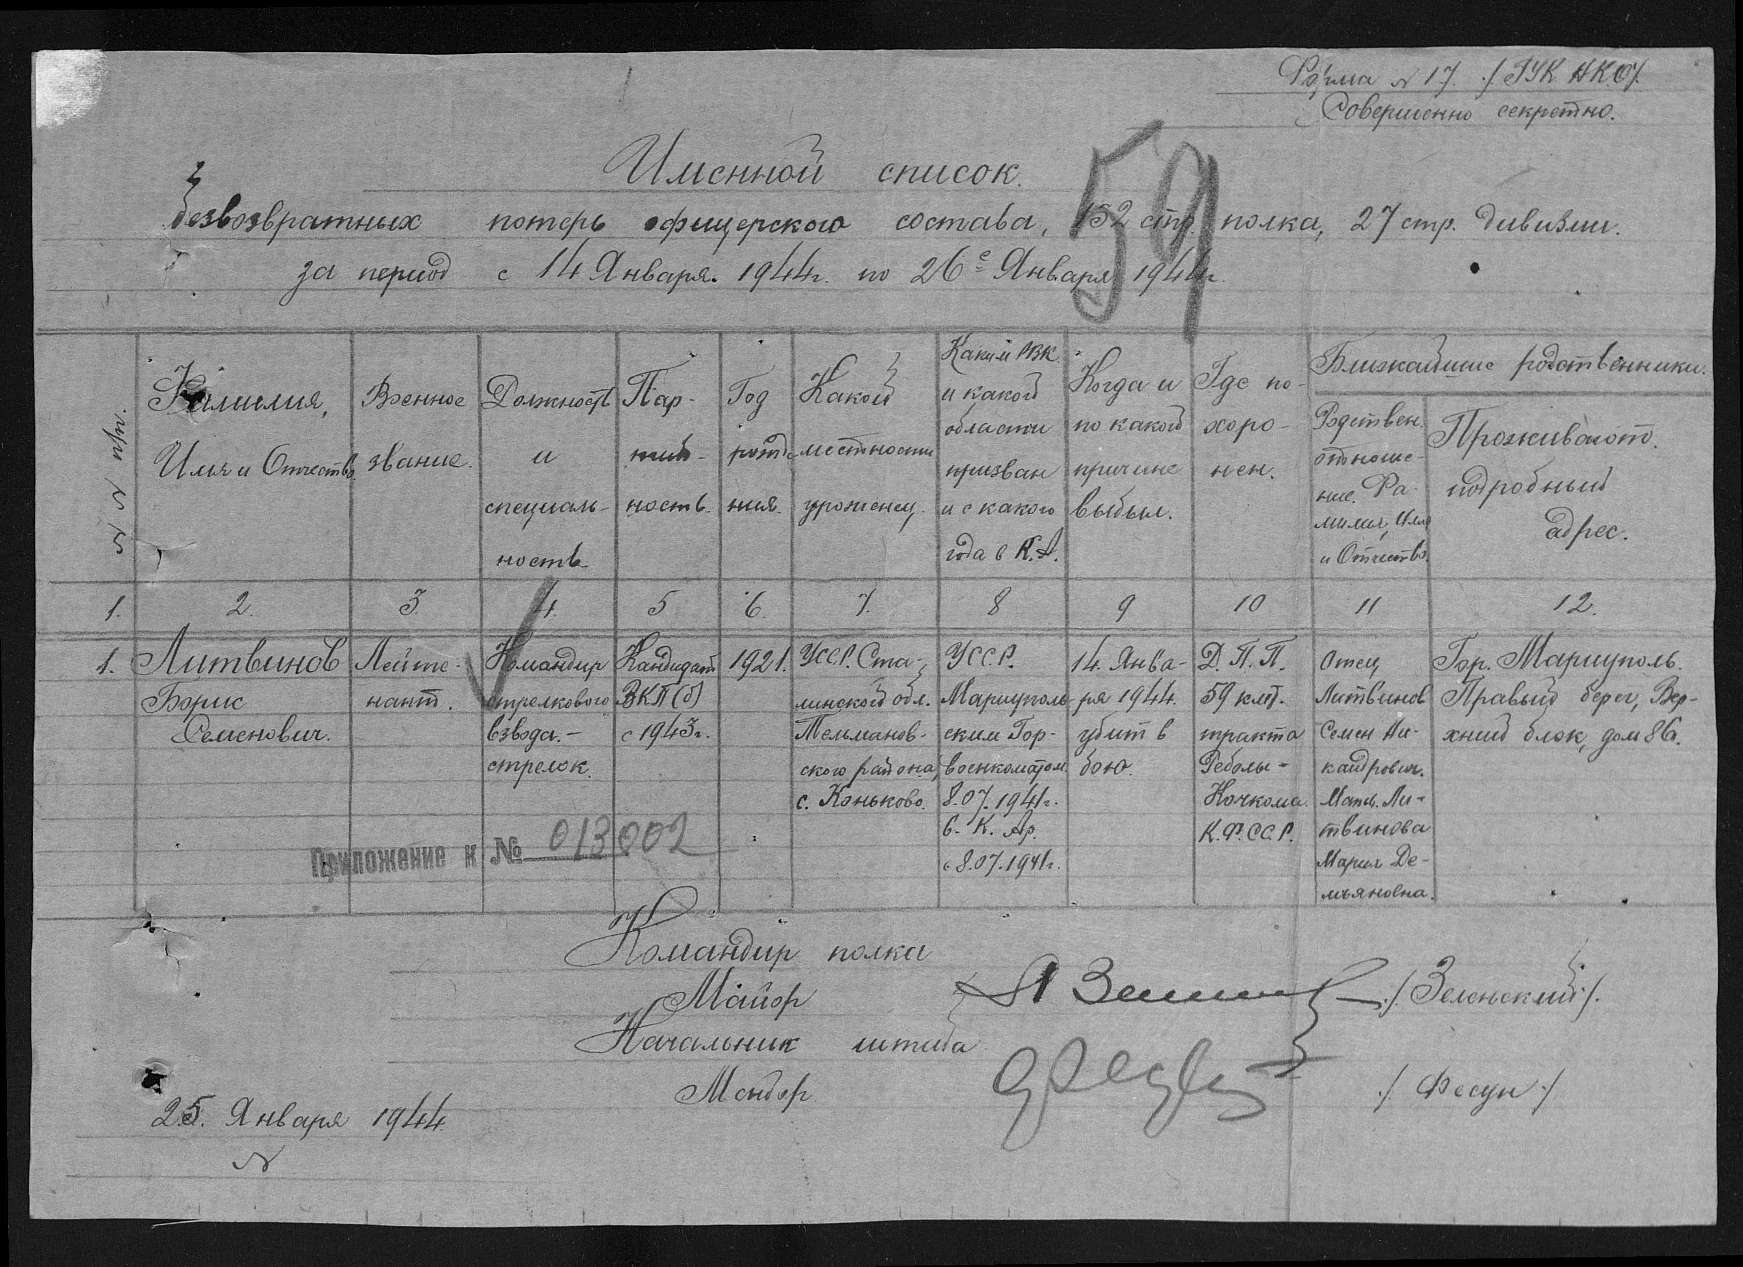 Форма № 17. /ГУК НКО/.
Совершенно секретно.
59
Именной список.
безвозвратных потерь офицерского состава, 132 стр. полка, 27 стр. дивизии.
за период с 14 Января 1944г. по 26е Января 1944г.
№ № п/п.
Фамилия,
Имя и Отчество.
Военное
звание.
Должность
и
специаль-
ность.
Пар-
тий-
ность.
Год
рожде-
ния.
Какой
местности
уроженец.
Каким РВК
и какой
области
призван
и с какого
года в К.А.
Когда и
по какой
причине
выбыл.
Где по-
хоро-
нен.
Ближайшие родственники.
Родствен.
отноше-
ние. Фа-
милия, Имя
и Отчество.
Проживают.
подробный
адрес.
1. 2. 3. 4. 5 6. 7. 8 9 10 11 12.
1.
Литвинов
Борис
Семенович.
Лейте-
нант.
Командир
стрелкового
взвода. –
стрелок.
Кандидат
ВКП(б)
с 1943г.
1921.
УССР. Ста-
линской обл.
Тельманов-
ского района,
с. Коньково.
УССР.
Мариуполь-
ским Гор-
военкоматом
8.07.1941г.
в. К. Ар.
с 8.07.1941г.
14. Янва-
ря 1944.
убит в
бою.
Д. П. П.
59 клт.
тракта
Реболы-
Кочкома.
К.Ф.ССР.
Отец
Литвинов
Семен Ни-
кандрович.
Мать. Ли-
твинова
Мария Де-
мьяновна.
Гор. Мариуполь.
Правый берег, Вер-
хний блок, дом 86.
Приложение к № 013002
Командир полка
Майор /Зеленский/.
Начальник штаба
Майор / Фесун /
25. Января 1944
№